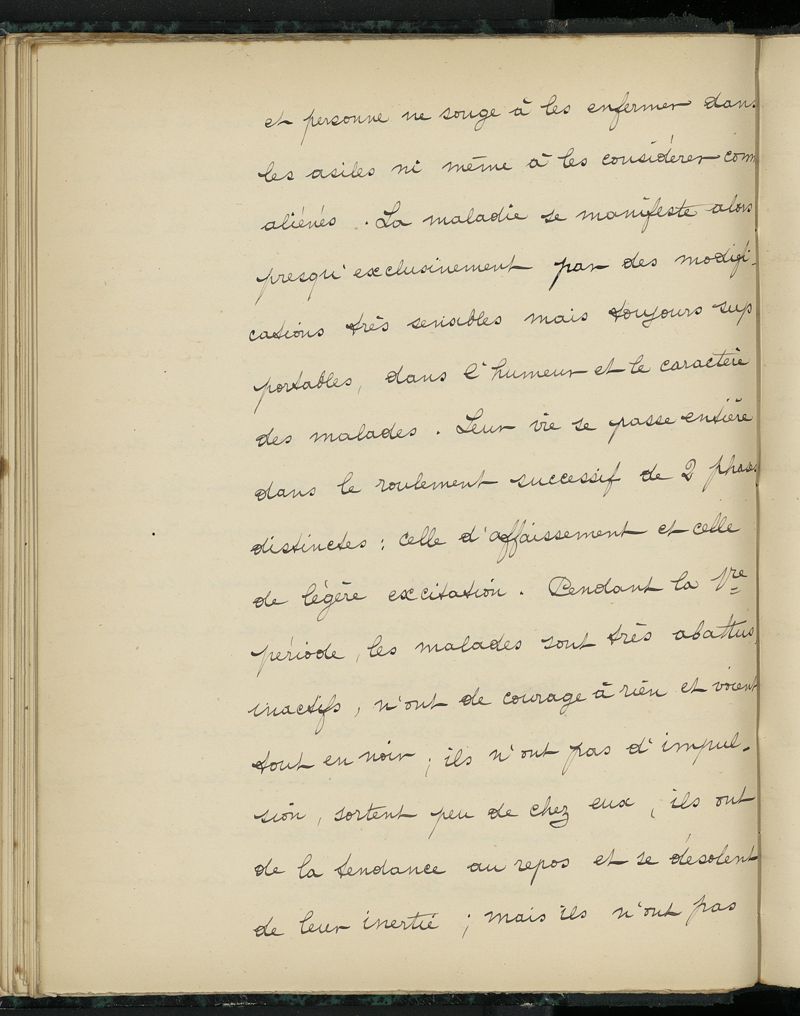 et personne ne songe à les enfermer dans
les asiles ni même à les considérer comm
aliénés. La maladie se manifeste alors
presqu'exclusivement par des modifi-
cations très sensibles mais toujours sup
portables, dans l'humeur et le caractère
des malades. Leur vie se passe entière
dans le roulement successif de 2 phases
distinctes : celle d'affaissement et celle
de légère excitation. Pendant la 1re
période, les malades sont très abattus,
inactifs, n'ont de courage à rien et voient
tout en noir ; ils n'ont pas d'impul-
sion, sortent peu de chez eux, ils ont
de la tendance au repos et se désolent
de leur inertie ; mais ils n'ont pas